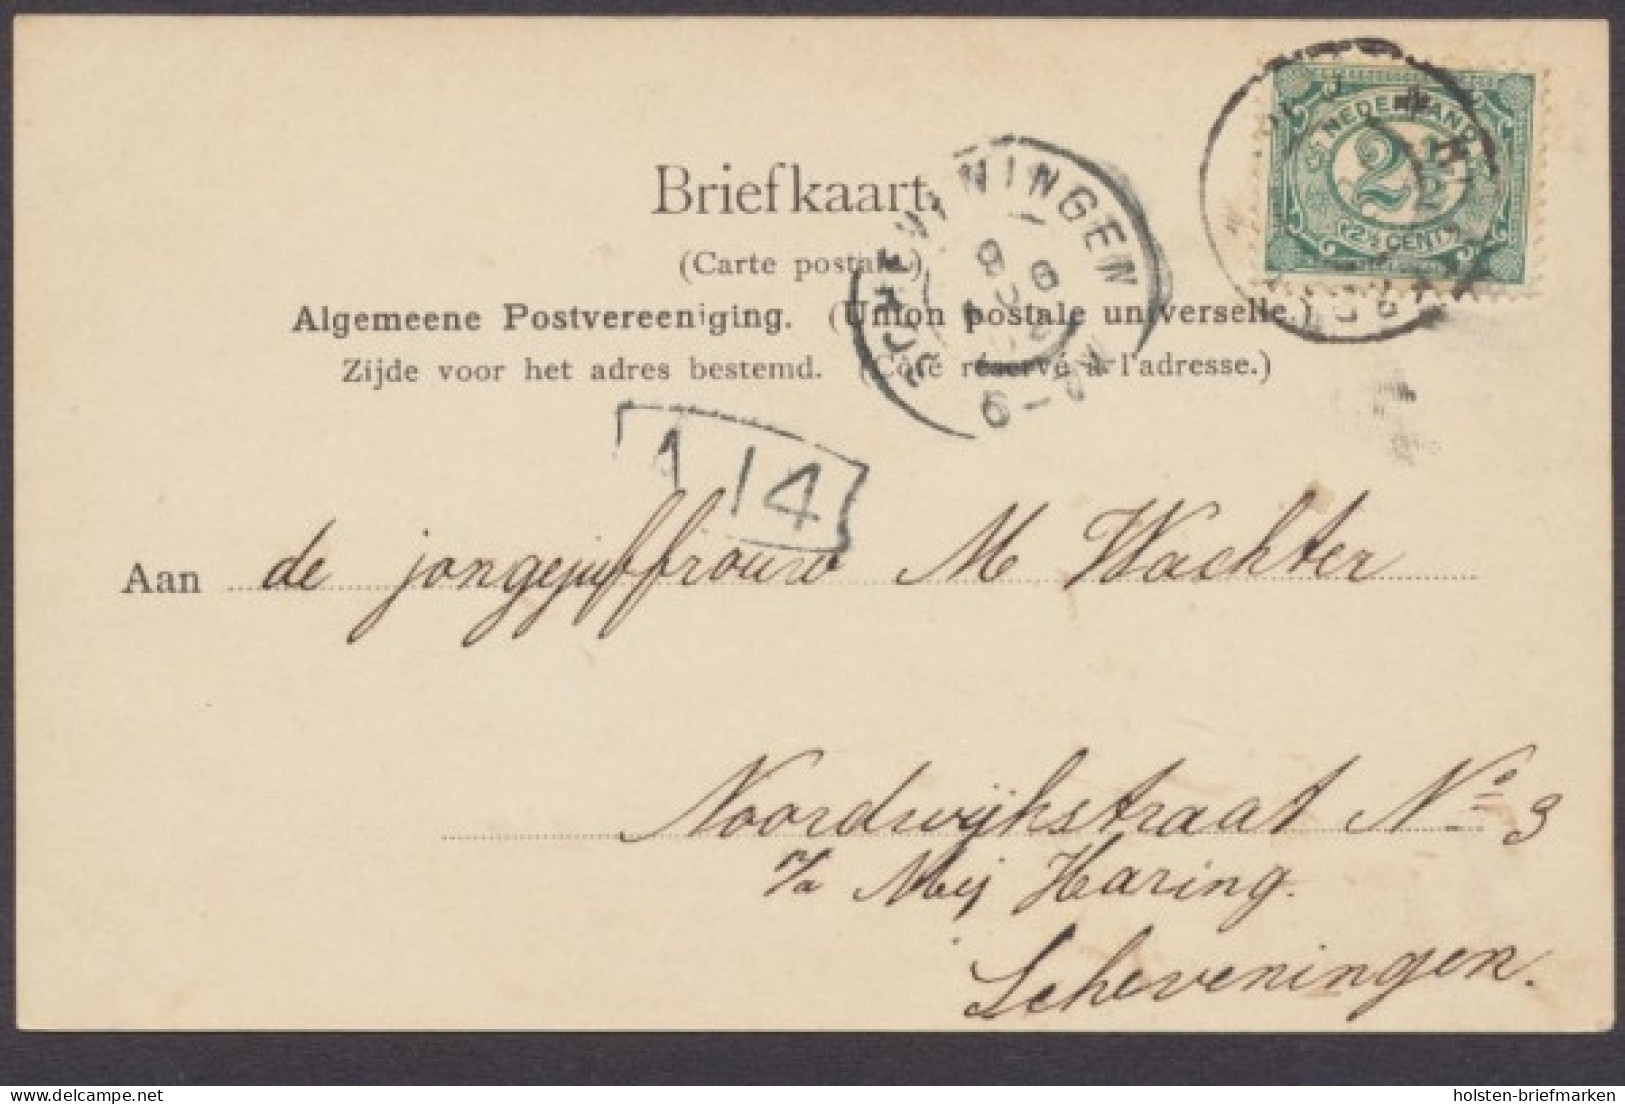 Briefkaart.
(Carte postale.)
Algemeene Postvereeniging. (Union postale universelle.)
Zijde voor het adres bestemd. (Côté réservé à l'adresse.)
NEDERLAND
2 1/2
(2½ CENT)
SCHEVENINGEN
14
Aan de jongejuffrouw M Wachter
Noordwijkstraat No 3
%a Mej Haring.
Scheveningen.
delcampe.net
holsten-briefmarken